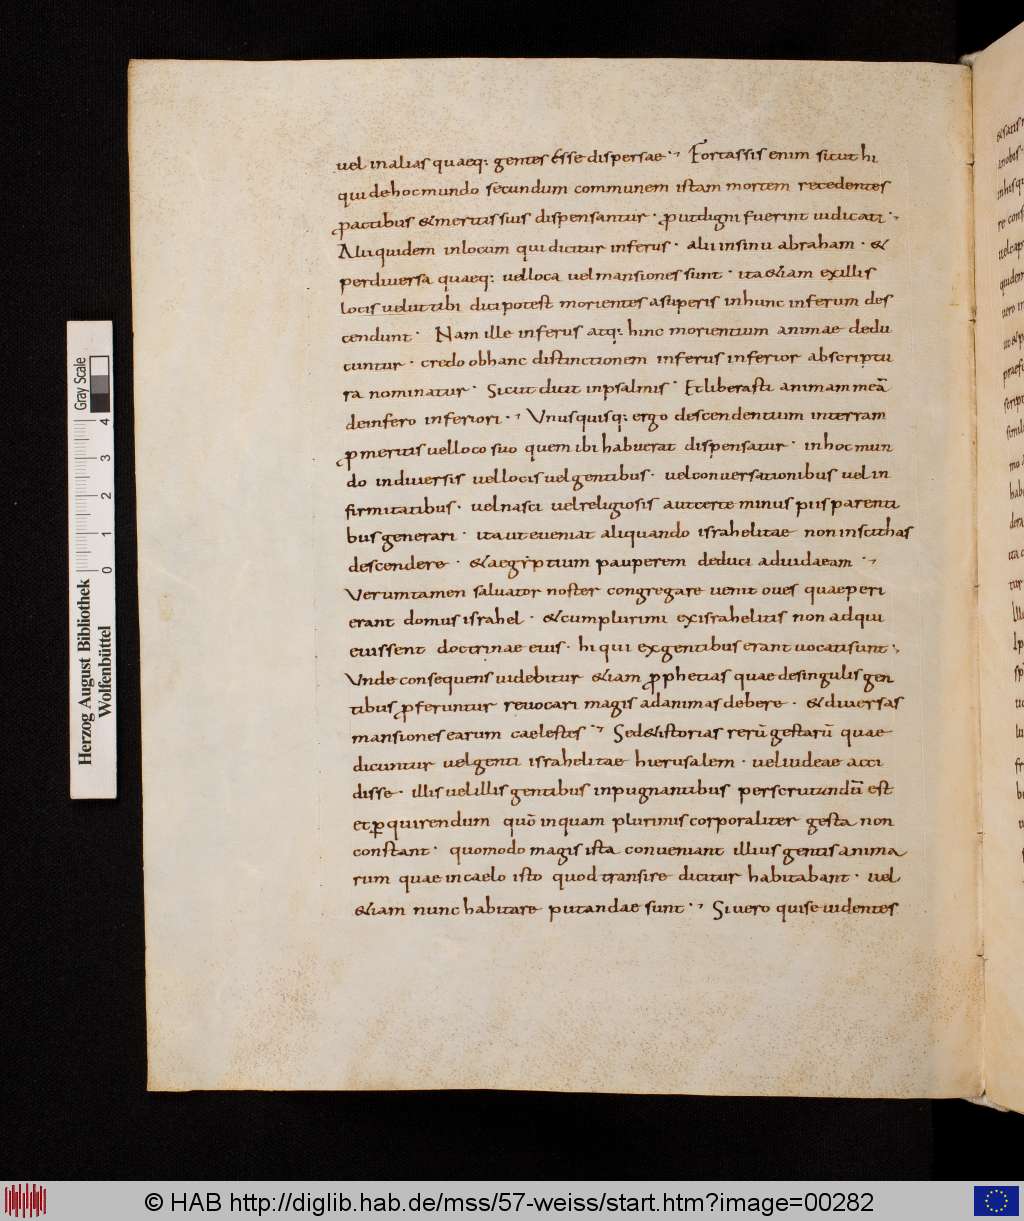 uel in alias quaeq: gentes esse dispersae ·, Fortassis enim sicut hi
qui de hoc mundo secundum communem istam mortem recedentes
ꝓ actibus & meritis suis dispensantur · ꝓut digni fuerint iudicati ·,
Alii quidem in locum qui dicitur infernus · alii in sinu abraham · &
per diuersa quaeq: uel loca uel mansiones sunt · ita &iam ex illis
locis uelut ibi dici potest morientes a superis in hunc inferum des
cendunt · Nam ille inferus atq: hinc morientium animae dedu
cuntur · credo ob hanc distinctionem inferus inferior ab scriptu
ra nominatur · Sicut dicit in psalmis · Et liberasti animam meā
de infero inferiori ·, Unusquisq: ergo descendentium in terram
ꝓ meritis uel loco suo quem ibi habuerat dispensatur · in hoc mun
do in diuersis uel locis uel gentibus · uel conuersationibus uel in
firmitatibus · uel nasci uel religiosis aut certe minus piis parenti
bus generari · ita ut eueniat aliquando israhelitae non in scithas
descendere · & aegyptium pauperem deduci ad uidaeam ·,
Verumtamen saluator noster congregare uenit oues quae peri
erant domus israhel · & cum plurimi ex israhelitis non adqui
euissent doctrinae eius · hi qui ex gentibus erant uocati sunt ·,
Vnde consequens uidebitur &iam ꝓphetias quae de singulis gen
tibus ꝓferuntur reuocari magis ad animas debere · & diuersas
mansiones earum caelestes ·, Sed & istorias rerū gestarū quae
dicuntur uel genti israhelitae hierusalem · uel iudeae acci
disse · illis uel illis gentibus inpugnantibus perscrutandū est
et ꝑquirendum quō inquam plurimis corporaliter gesta non
constant · quomodo magis ista conueniant illius gentis anima
rum quae in caelo isto quod transire dicitur habitabant · uel
&iam nunc habitare putandae sunt ·, Si uero qui se uidentes
Herzog August Bibliothek
Wolfenbüttel
0 1 2 3 4
Gray Scale
© HAB http://diglib.hab.de/mss/57-weiss/start.htm?image=00282